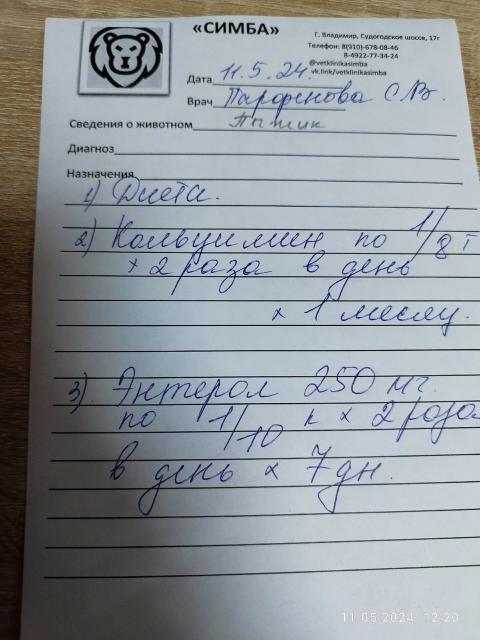 «СИМБА»
Г. Владимир, Судогодское шоссе, 17г
Телефон: 8(910)-678-08-46
8-4922-77-34-24
@vetklinikasimba
vk.link/vetklinikasimba
Дата 11.5.24.
Врач Парфенова С.В.
Сведения о животном Пыжик
Диагноз
Назначения
1) Диета.
2) Кальцимин по 1/8 т
× 2 раза в день
× 1 месяц.
3) Энтерол 250 мг.
по 1/10 к × 2 раза
в день × 7 дн.
11.05.2024 12:20